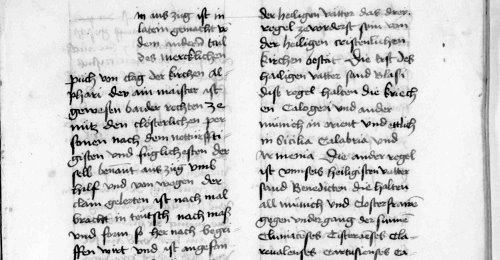 in aus zug ist in
latein gemacht vō
dem andern tail
des mercklichen
půch von clag der kirchen al
phari der ain maister ist
gewesen baider rechten ze
nütz den clösterlichen per
sonen nach dem notturffti
gisten vnd füglichesten der
selb benant aus zug vmb
hilff vnd von wegen der
clain gelerten ist nach mal
bracht in teutsch nach maß
vnd form so her nach begri
ffen wirt vnd ist angefan
der heiligen vätter das drey
regel zevorderst sein von
der heiligen cristenlichen
kirchen bestät Die erst des
hailigen vatter sand Blasi
dise regel halten die kriech
en Calogeri vnd ander
münich in orient vnd ettlich
in Sicilia Calabria vnd
Armenia Die ander regel
ist vnnseis heiligisten vatter
sand Benedicten die halten
all münich vnd closterfrawē
gegen vnder gang der sunne
Cluniacenses Cisterciēses Cla
revalenses Cartusienses Ca